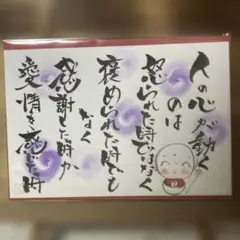 人の心が動く
のは
怒られた時ではなく
褒められた時でも
なく
感謝した時か
愛情を感じた時